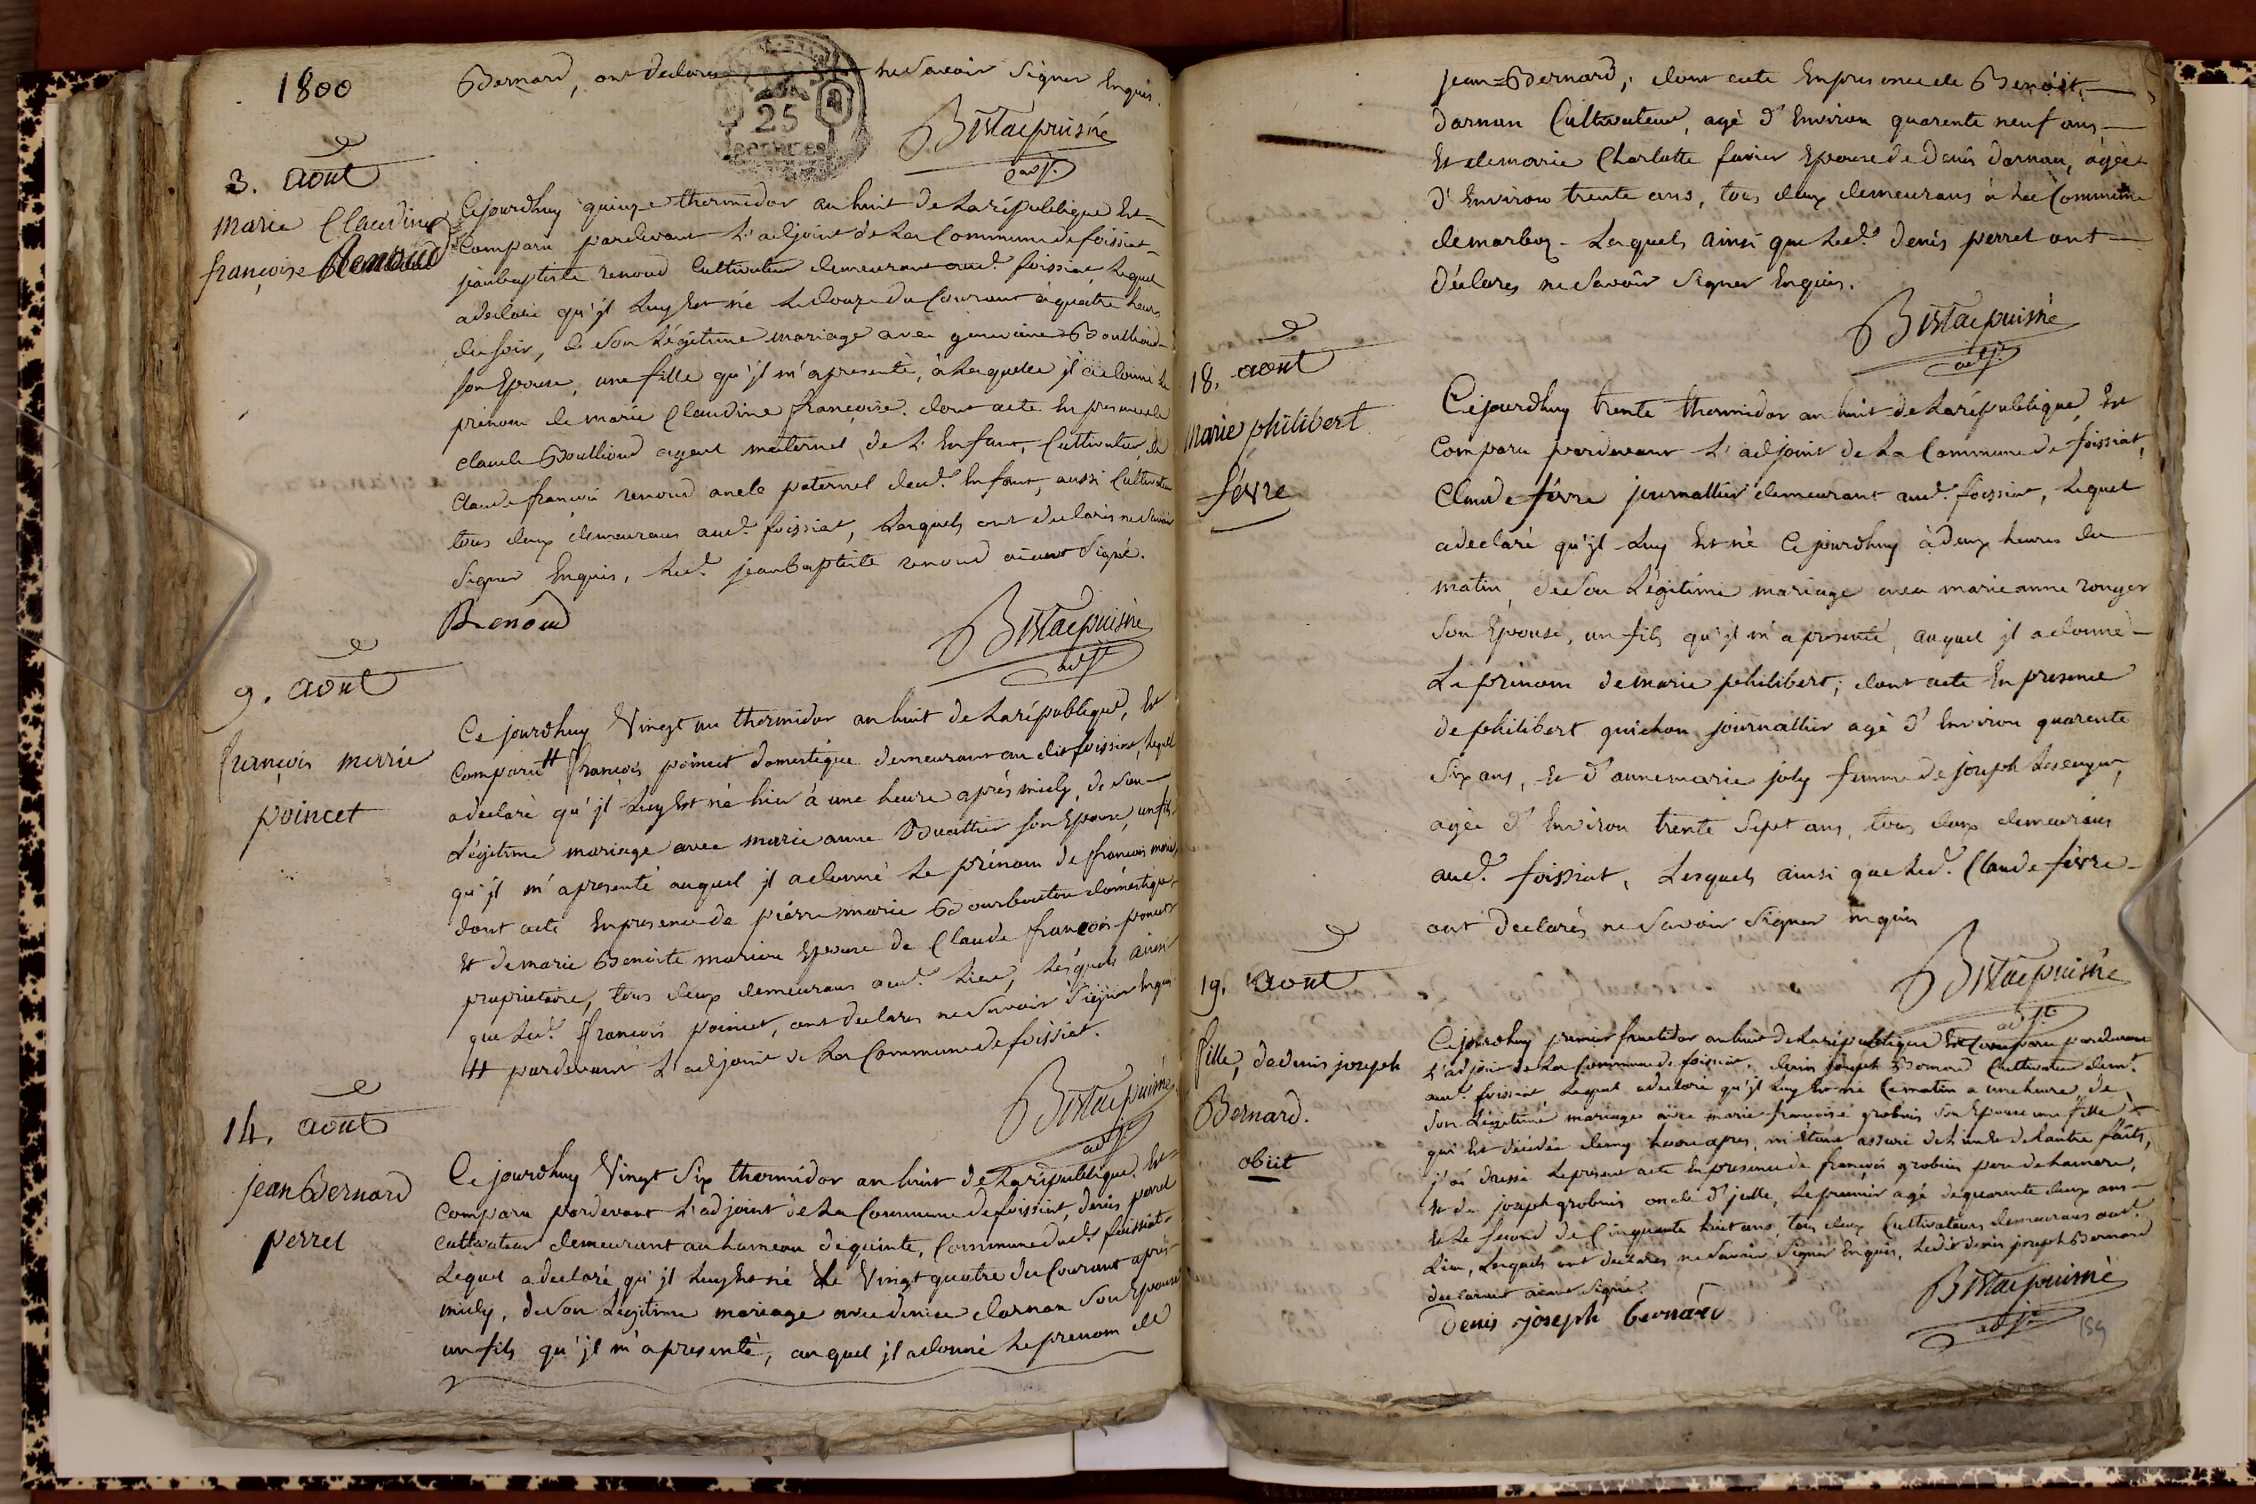 1800
Bernard, ont declarés ne Savoir Signer Enquis.
25
centimes
Bistac puisné
adjt.
3. aout
marie Claudine
françoise Renoud
Cejourdhuy quinze thermidor an huit de La république Est
Comparu pardevant L'adjoint de La Commune de foissiat
jeanbaptiste renoud Cultivateur demeurant aud.t foissiat Lequel
adeclaré qu'jl Luy Est né Le douze du Courant à quatre heures
du soir, de Son Légitime mariage avec genevieve Boullioud
Son Epouse, une fille qu'jl m'apresenté, à Laquelle jl adonné Le
prénom de marie Claudine françoise. dont acte En presence de
claude Boullioud ayeul maternel de L'Enfant, Cultivateur, et
Claude françois renoud oncle paternel dud.t Enfant, aussi Cultivateur
tous deux demeurans aud.t foissiat, Lesquels ont declarés ne Savoir
Signer Enquis, Led.t jeanbaptiste renoud aiant Signé.
Renoud
Bistac puisné
adjt.
9. aout
françois marie
poincet
Ce jourdhuy Vingt un thermidor an huit de La république, Est
Comparu # françois poincet domestique demeurant au dit foissiat, Lequel
adeclaré qu'jl Luy Est né hier à une heure après midy, de Son
Légitime mariage avec marie anne Douattier Son Epouse, un fils
qu'jl m'apresenté auquel jl adonné Le prénom de françois marie,
dont acte Enpresence de piérre marie Bourbouton domestique
Et de marie Benoite marion Epouse de Claude françois poncet
proprietaire, tous deux demeurans aud.t Lieu, Lesquels ainsi
que Led.t françois poincet, ont declarés ne Savoir Signer Enquis
# pardevant L'adjoint de La Commune de foissiat.
Bistac puisné
adjt.
14. aout
jean Bernard
perret
Ce jourdhuy Vingt Six thermidor an huit de La république, Est
Comparu pardevant L'adjoint de La Commune de foissiat, denis perret
Cultivateur demeurant au hameau de quinte, Commune dud.t foissiat
Lequel adeclaré qu'jl Luy Est né Le Vingt quatre du Courant après
midy, de Son Légitime mariage avec denise darnan Son Epouse
un fils qu'jl m'apresenté, auquel jl adonné Le prenom de
jean=Bernard; dont acte Enpresence de Benoit
darnan Cultivateur, agé d'Environ quarente neuf ans
Et de marie Charlotte favier Epouse de Denis darnan, agée
d'Environ trente ans, tous deux demeurans à La Commune
de marboz. Lesquels ainsi que Led.t denis perret ont
déclarés ne Savoir Signer Enquis.
Bistac puisné
adjt.
18. aout
marie philibert
févre
Cejourdhuy trente thermidor an huit de La république, Est
Comparu pardevant L'adjoint de La Commune de foissiat,
Claude févre journallier demeurant aud.t foissiat, Lequel
adeclaré qu'jl Luy Est né Cejourdhuy à deux heures du
matin, de Son Légitime mariage avec marieanne rouyer
Son Epouse, un fils qu'jl m'apresenté, auquel jl adonné
Le prénom de marie philibert; dont acte En presence
de philibert quichon journallier agé d'Environ quarente
Six ans, Et d'annemarie joly femme de joseph
agée d'Environ trente Sept ans, tous deux demeurans
aud.t foissiat, Lesquels ainsi que Led.t Claude févre
ont declarés ne Savoir Signer enquis
Bistac puisné
adjt.
19. aout
fille, de denis joseph
Bernard.
obiit
Cejourdhuy premier fructidor an huit de La république Est Comparu pardevant
L'adjoint de La Commune de foissiat, denis joseph Bernard Cultivateur dem.t
aud.t foissiat, Lequel adeclaré qu'jl Luy Est né Ce matin a une heure, de
Son Légitime mariage avec marie françoise grobuis Son Epouse une fille
qui Est décédée demy heure apres, m'étant assuré de L'un & de L'autre faits,
j'ai dressé Le présent acte En presence de françois grobuis pere de La mere,
Et de joseph grobuis oncle d'jcelle, Le premier agé de quarente deux ans
Et Le Second de Cinquante huit ans, tous deux Cultivateurs demeurans aud.t
Lieu, Lesquels ont declarés ne Savoir Signer Enquis, Ledit denis joseph Bernard
declarant aiant Signé.
Denis joseph bernard
Bistac puisné
adjt.
159